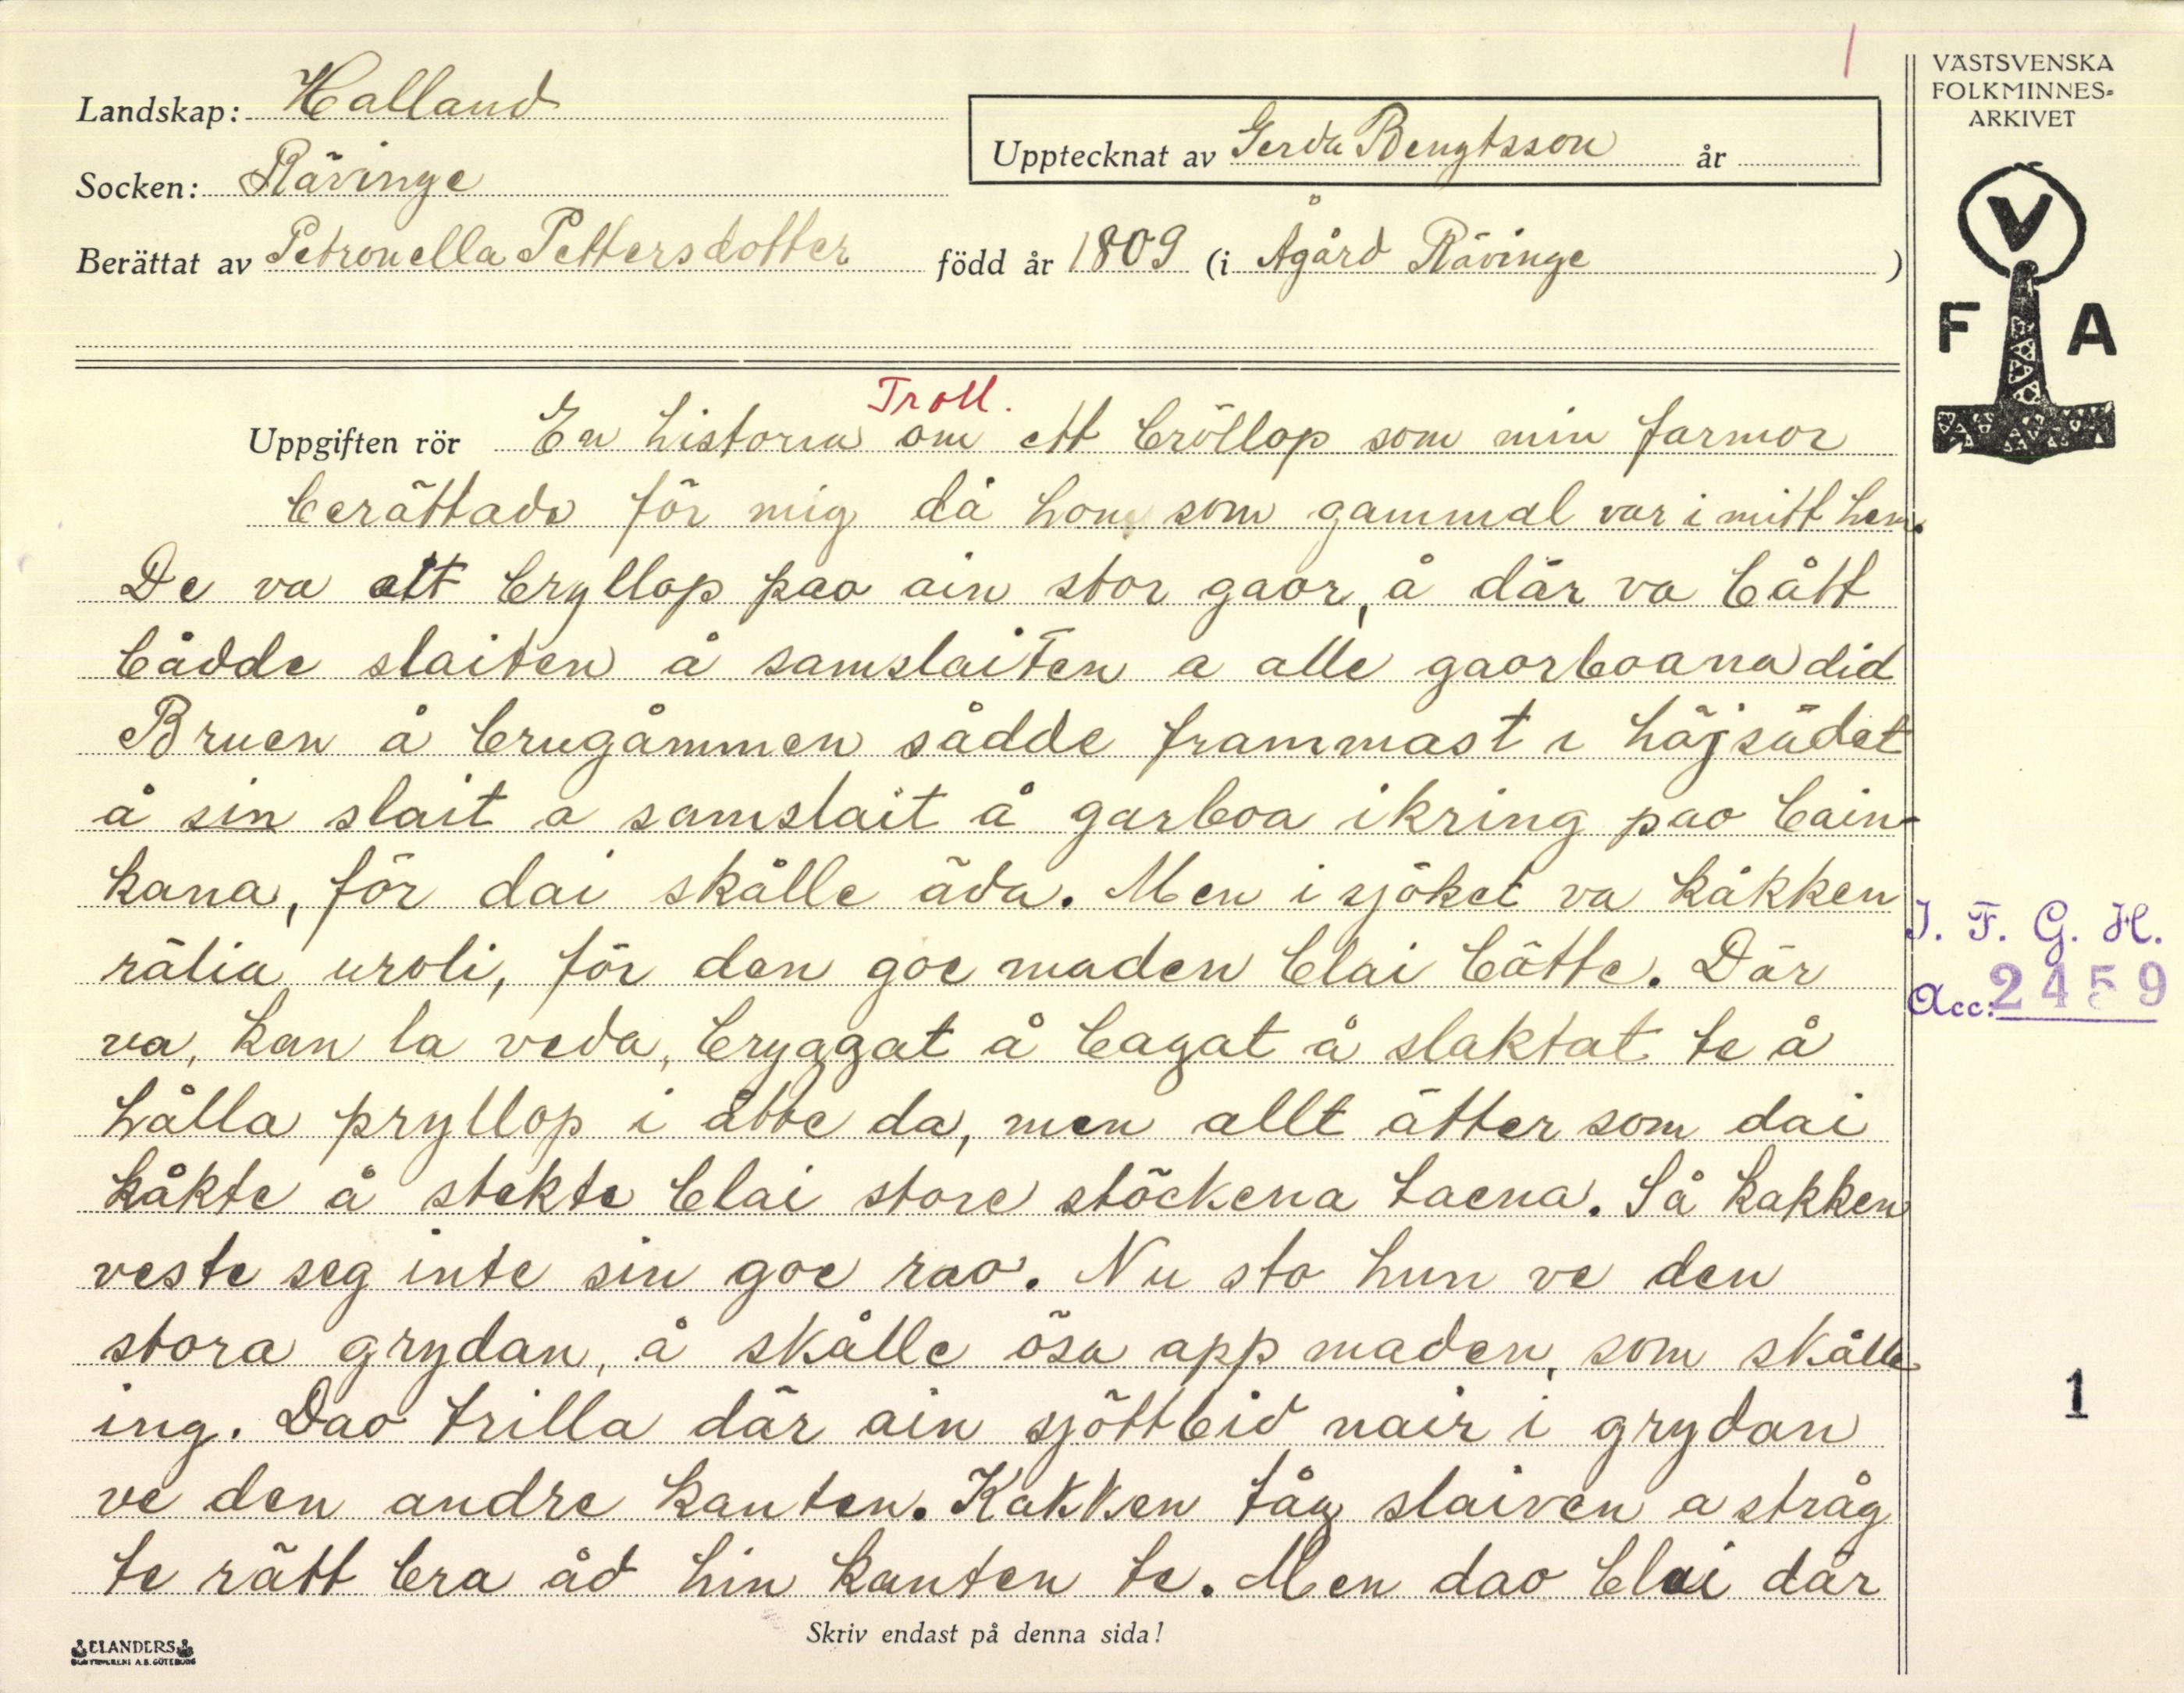 Landskap: Halland
Socken: Rävinge
Berättat av Petronella Pettersdotter född år 1809 (i Ågård Rävinge )
Upptecknat av Gerda Bengtsson år
VÄSTSVENSKA
FOLKMINNES-
ARKIVET
V
F A
Troll.
Uppgiften rör En historia om ett bröllop som min farmor
berättade för mig då hon som gammal var i mitt hem.
De va ett bryllop pao ain stor gaor, å där va bått
bådde slaiten å samslaiten a alle gaorboana did
Bruen å brugåmmen sådde frammast i häjsädet
å sin slait a samslait å garboa ikring pao bain-
kana, för dai skålle äda. Men i sjöket va kåkken
rälia uroli, för den goe maden blai bätte. Där
va, kan la veda, bryggat å bagat å slaktat te å
hålla pryllop i åtte da, men allt ätter som dai
kåkte å stekte blai store stöckena taena. Så kakken
veste seg inte sin goe rao. Nu sto hun ve den
stora grydan, å skålle ösa app maden, som skålle
ing. Dao trilla där ain sjöttbid nair i grydan
ve den andre kanten. Kakken tåg slaiven a stråg
te rätt bra åd hin kanten te. Men dao blai där
Skriv endast på denna sida!
I. F. G. H.
Acc: 2459
1
ELANDERS
BOKTRYCKERI A.B. GÖTEBORG